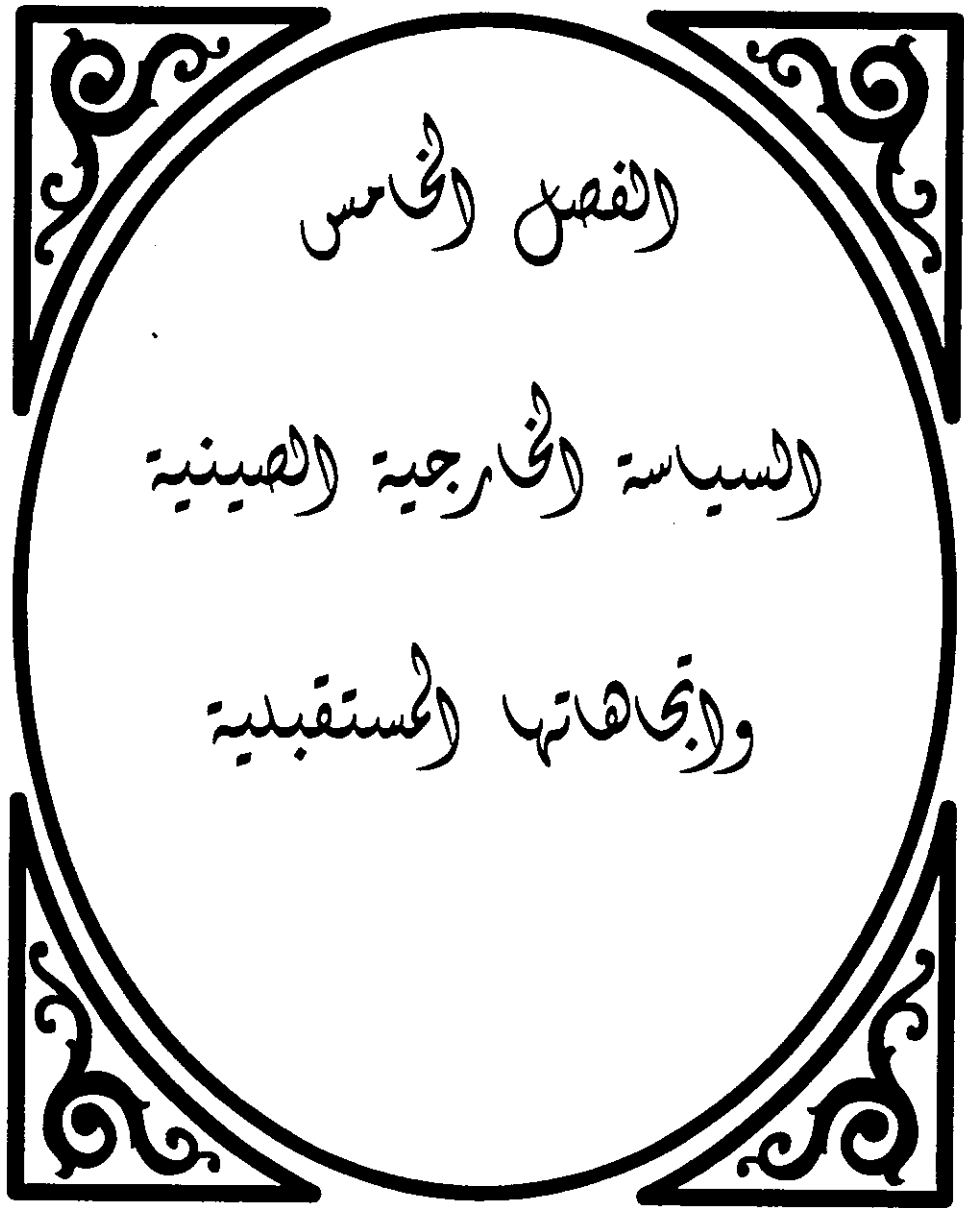 الفصل الخامس
السياسة الخارجية الصينية
واتجاهاتها المستقبلية